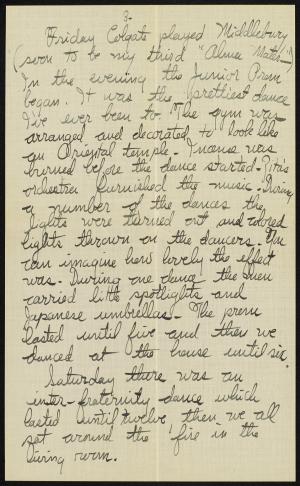 2-
Friday Colgate played Middlebury
(soon to be my third "Alma Mater-")
In the evening the Junior Prom
began. It was the prettiest dance
I've ever been to. The gym was
arranged and decorated to look like
an Oriental temple. Incense was
burned before the dance started.
orchestra furnished the music. During
a number of the dances the
lights were turned out and colored
lights thrown on the dancers. You
can imagine how lovely the effect
was. During one dance, the men
carried little spotlights and
Japanese umbrellas. The prom
lasted until five and then we
danced at the house until six.
Saturday there was an
inter-fraternity dance which
lasted until twelve then we all
sat around the fire in the
living room.